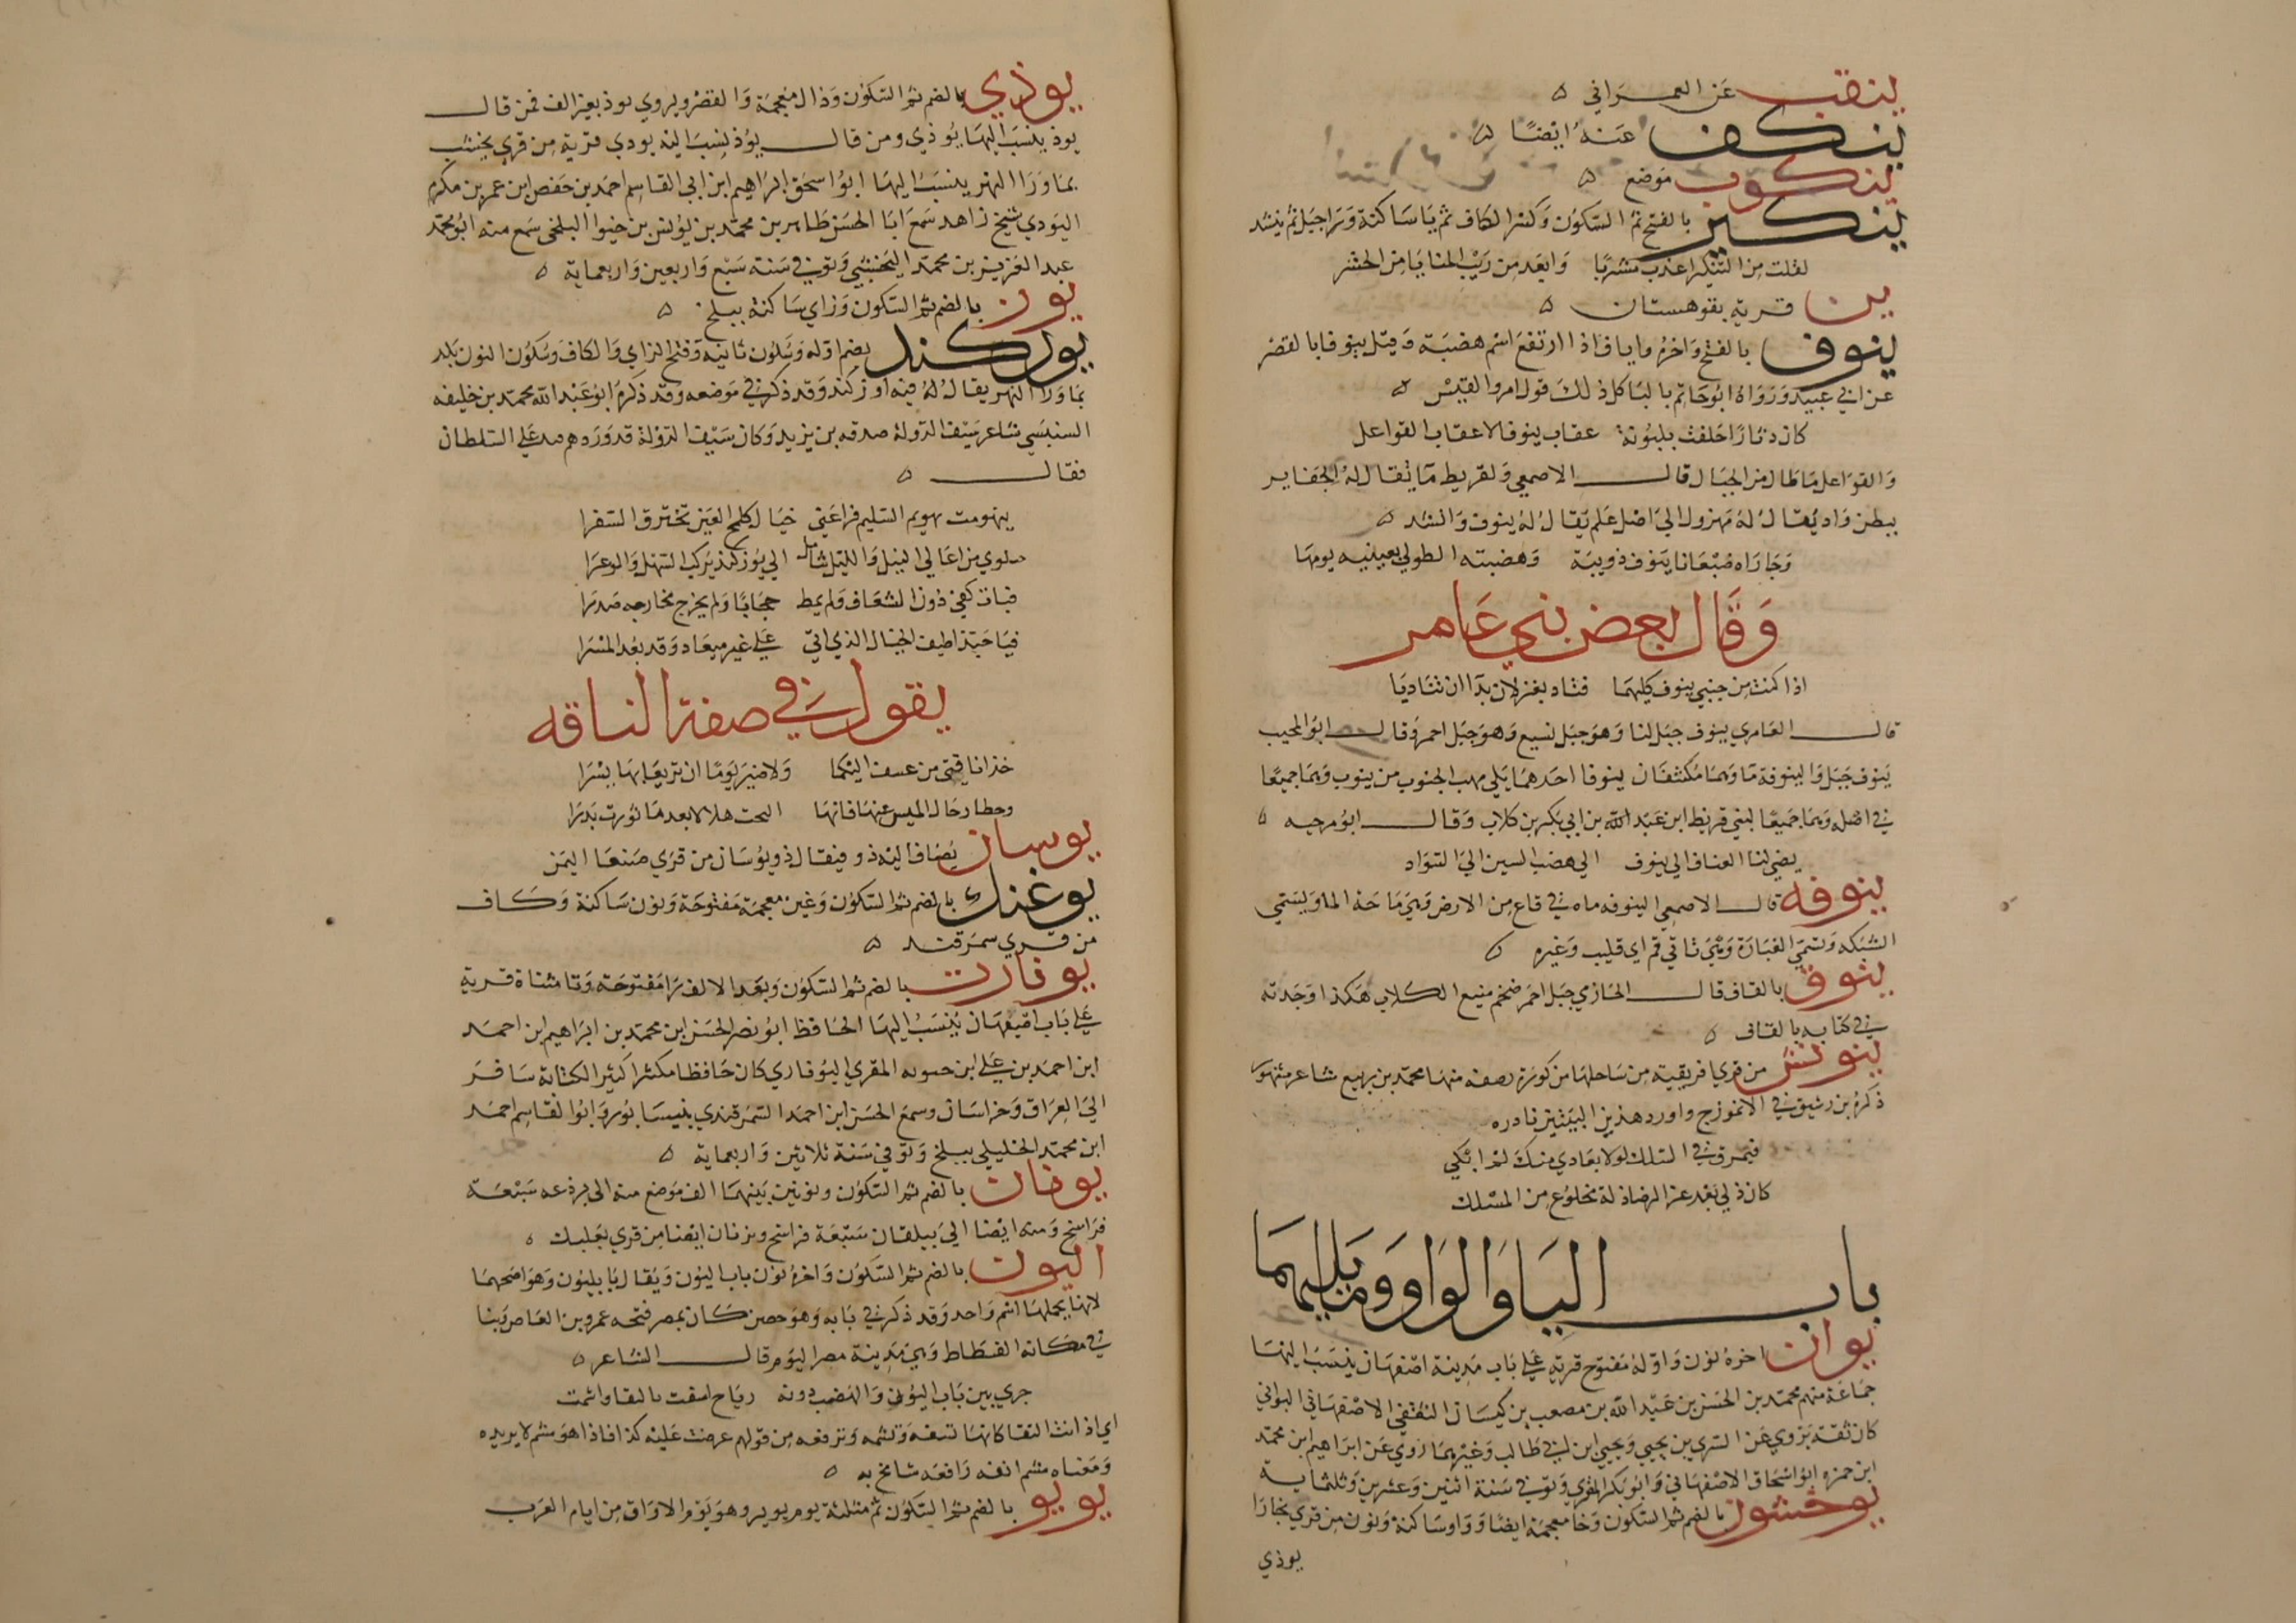 ينقب عن العمراني ه
ينكف عنه ايضا ه
ينكوب موضع ه
ينكير بالفتح ثم السكون وكسر الكاف ثم يا ساكنة ورا جبل ثم ينشد
لقلت من الينكير اعذب مشربا وابعد من ريب المنايا من الحشر
ين قرية بقوهستان ه
ينوف بالفتح واخره وايا فا اذا ارتفع اسم هضبة وقيل ينوفا بالقصر
عن ابي عبيد ورواه ابو حاتم بالبا كل ذلك قول امرو القيس ه
كان دثارا حلفت بلبونه عقاب ينوف لا عقاب القواعل
والقواعل ما طال من الجبال قال الاصمعي ولقريط ما يقال له الجفاير
ببطن واد يقال له مهزول الي اصل علم يقال له ينوف وانشد ه
وجاراه ضبعانا ينوف ذويبة وهضبته الطولي بعينيه يومها
وقال بعض بني عامر
اذا كنت من جنبي ينوف كليهما فناد بغزلان بدا ان تناديا
قال العامري ينوف جبل لنا وهو جبل نسيع وهو جبل احمر وقال ابو المجيب
ينوف جبل والينوفة ما وهما مكتنفان ينوفا احدهما يلي مهب الجنوب من ينوب وهما جميعا
في اصله وهما جميعا لبني قريط ابن عبد الله بن ابي بكر بن كلاب وقال ابو مرحيه ه
يضي لنا العناف الي ينوف الي هضب السين الي السواد
ينوفه قال الاصمعي الينوفه ماه في قاع من الارض وهي ماحة الما ويسمي
الشبكه وتسمي الغبارة وهي تاتي فم اي قليب وغيره ه
ينوق بالقاف قال الحازي جبل احمر ضخم منيع الكلاب هكذا وجدته
في كتابه بالقاف ه
ينونش من قري افريقية من ساحلها من كورة رصفه منها محمد بن ربيع شاعر مشهور
ذكره بن رشيق في الانموزج واورد هذين البيتين نادره
فيمرق في السلك لولا بعادي منك لم ابكي
كان ذلي بعد عز الرضا ذلة مخلوع من الملك
باب اليا والواو وما يليهما
يوان اخره نون واوله مفتوح قرية علي باب مدينة اصفهان ينسب اليها
جماعة منهم محمد بن الحسن بن عبد الله بن مصعب بن كيسان الثقفي الاصفهاني اليواني
كان ثقة يروي عن السري بن يحيي ويحيي ابن ابي طالب وغيرهما روي عن ابراهيم ابن محمد
ابن حمزه ابو اسحاق الاصفهاني وابو بكر المقري وتوفي سنة اثنين وعشرين وثلثماية
يوخشون بالضم ثم السكون وخا معجمة ايضا وواو ساكنة ونون من قري بخارا
يوذي
يوذي بالضم ثم السكون وذال معجمة والقصر ويروي يوذ بغير الف فمن قال
يوذ ينسب اليها يوذي ومن قال يوذ ينسب اليه يودي قرية من قري نخشب
بما ورا النهر ينسب اليها ابو اسحق ابراهيم ابن ابي القاسم احمد بن حفص ابن عمر بن مكرم
اليودي شيخ زاهد سمع ابا الحسن طاهر بن محمد بن يونس بن خيوا البلخي سمع منه ابو محمد
عبد العزيز بن محمد النخشبي وتوفي سنة سبع واربعين واربعماية ه
يوز بالضم ثم السكون وزاي ساكنة ببلخ ه
يوزكند بضم اوله وسكون ثانيه وفتح الزاي والكاف وسكون النون بلد
بما ورا النهر يقال له فيه اوزكند وقد ذكر في موضعه وقد ذكره ابو عبد الله محمد بن خليفه
السنبسي شاعر سيف الدولة صدقه بن يزيد وكان سيف الدولة قد ورد همد علي السلطان
فقال ه
يهومت تهويم السليم فراعني خيال كلمح العين تخترق السفرا
من اعالي النيل والليل شامل الي يوزكند يركب السهل والوعرا
فبات كفي دون الشعاف ولم يمط حجابا ولم يحزج مخارجه صدرا
فيا حبذا طيف الخيال الذي اتي علي غير ميعاد وقد بعد المسرا
يقول في صفة الناقه
خذا ناقتي من عسف اليكما ولا ضير يوما ان تريعا بها يسرا
وحطا رحال الميس عنها فانها هلالا بعد ما ثورت بدرا
يوسان يضاف اليه ذو فيقال ذو يوسان من قري صنعا اليمن
يوغنك بالضم ثم السكون وغين معجمة مفتوحة ونون ساكنة وكاف
من قري سمرقند ه
يوفارت بالضم ثم السكون وبعد الالف را مفتوحة وتا مثناة قرية
علي باب اصبهان ينسب اليها الحافظ ابو نصر الحسن ابن محمد بن ابراهيم ابن احمد
ابن احمد بن علي ابن حسويه المقري اليوفاري كان حافظا مكثرا كثير الكتابة سافر
الي العراق وخراسان وسمع الحسن ابن احمد السمرقندي بنيسابور وابو القاسم احمد
ابن محمد الخليلي ببلخ وتوفي سنة ثلاثين واربعماية ه
يونان بالضم ثم السكون ونونين بينهما الف موضع منه الي برذعه سبعة
فراسخ ومنه ايضا الي بيلقان سبعة فراسخ ويونان ايضا من قري بعلبك ه
اليون بالضم ثم السكون واخره نون باب اليون ويقال بابليون وهو اصحهما
لانهما يجملها اسم واحد وقد ذكر في بابه وهو حصن كان بمصر فتحه عمرو بن العاص وبنا
في مكانه الفسطاط وهي مدينة مصر اليوم قال الشاعر ه
جري بين باب اليون والهضب دونه رياح اسفت بالنقا واشمت
اي اذ انت النقا كانها تسفه وتشمه وترفعه من قولهم عرضت عليه كذا فاذا هو مشم لا يريده
ومعناه مشم انفه رافعه شامخ به ه
يويو بالضم ثم السكون ثم مثلثة يوم يوير وهو يوم الاواق من ايام العرب